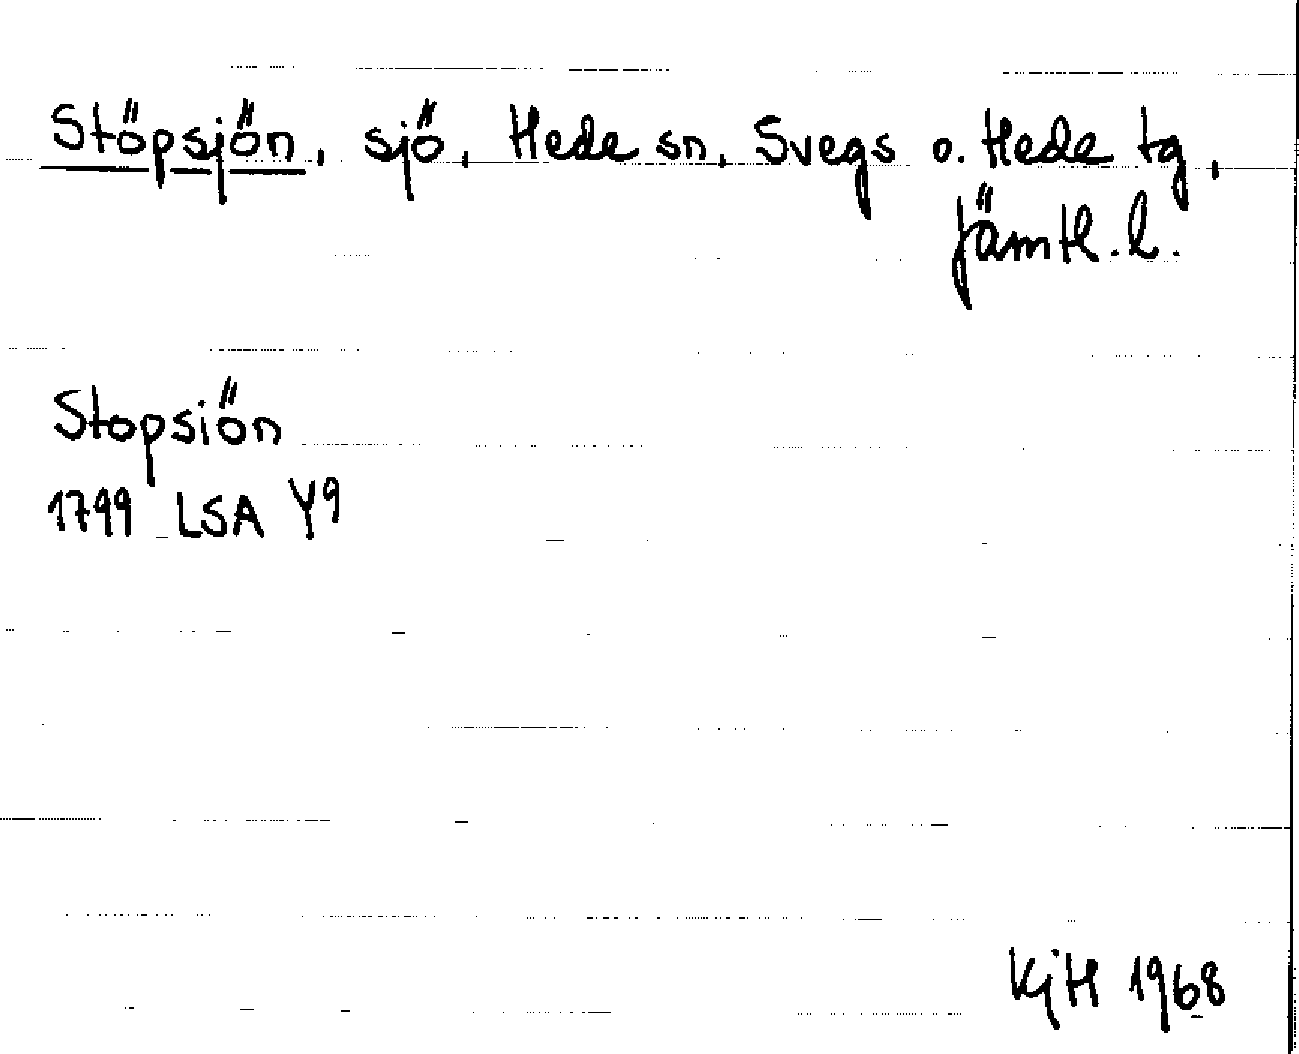 Stöpsjön, sjö, Hede sn, Svegs o. Hede tg,
Jämtl. l.
Stopsiön
1799 LSA Y9
KjH 1968